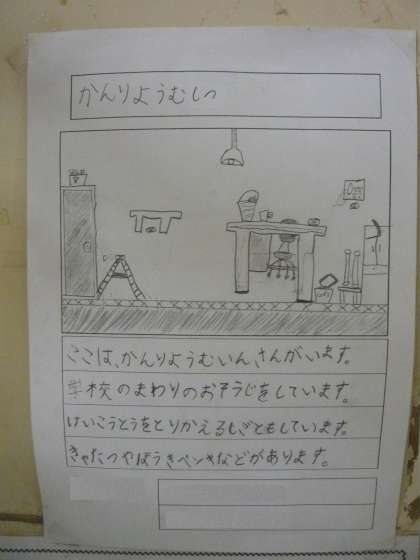 かんりようむしつ
ここは、かんりようむいんさんがいます。
学校のまわりのおそうじをしています。
けいこうとうをとりかえるしごともしています。
きゃたつやほうきペンキなどがあります。